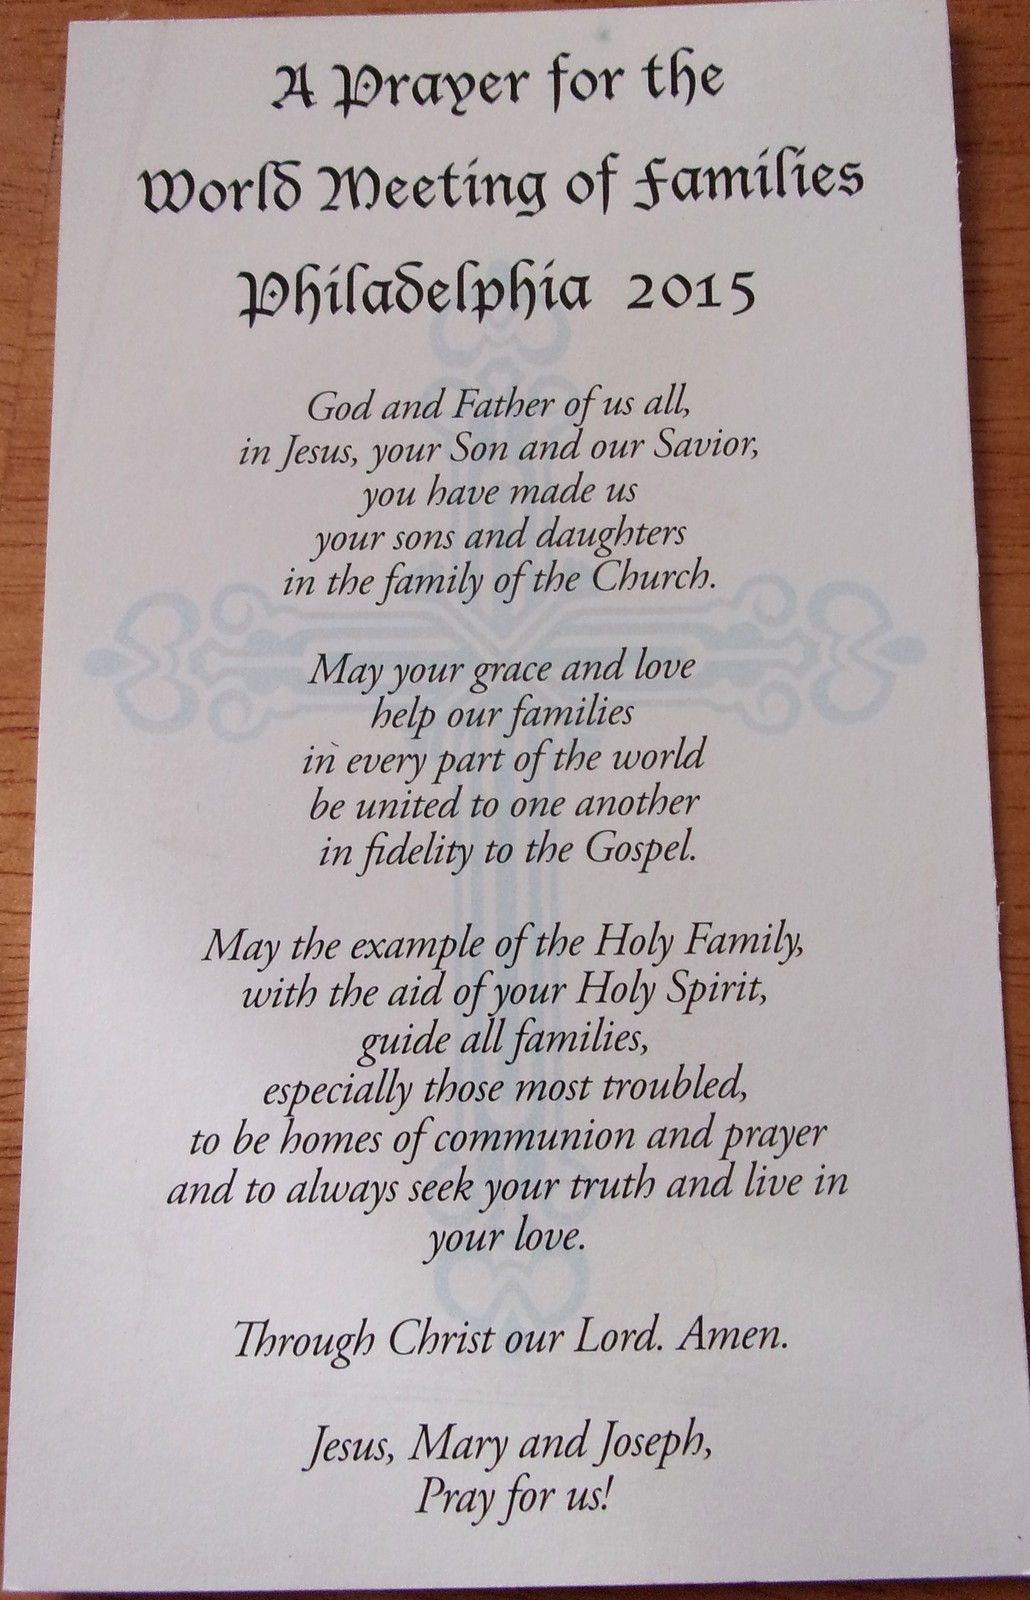 A Prayer for the
World Meeting of Families
Philadelphia 2015
God and Father of us all,
in Jesus, your Son and our Savior,
you have made us
your sons and daughters
in the family of the Church.
May your grace and love
help our families
in every part of the world
be united to one another
in fidelity to the Gospel.
May the example of the Holy Family,
with the aid of your Holy Spirit,
guide all families,
especially those most troubled,
to be homes of communion and prayer
and to always seek your truth and live in
your love.
Through Christ our Lord. Amen.
Jesus, Mary and Joseph,
Pray for us!